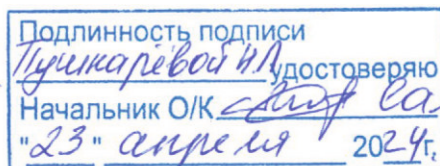 Подлинность подписи
Пушкаревой Н.Л. удостоверяю
Начальник О/К
"23" апреля 2024г.